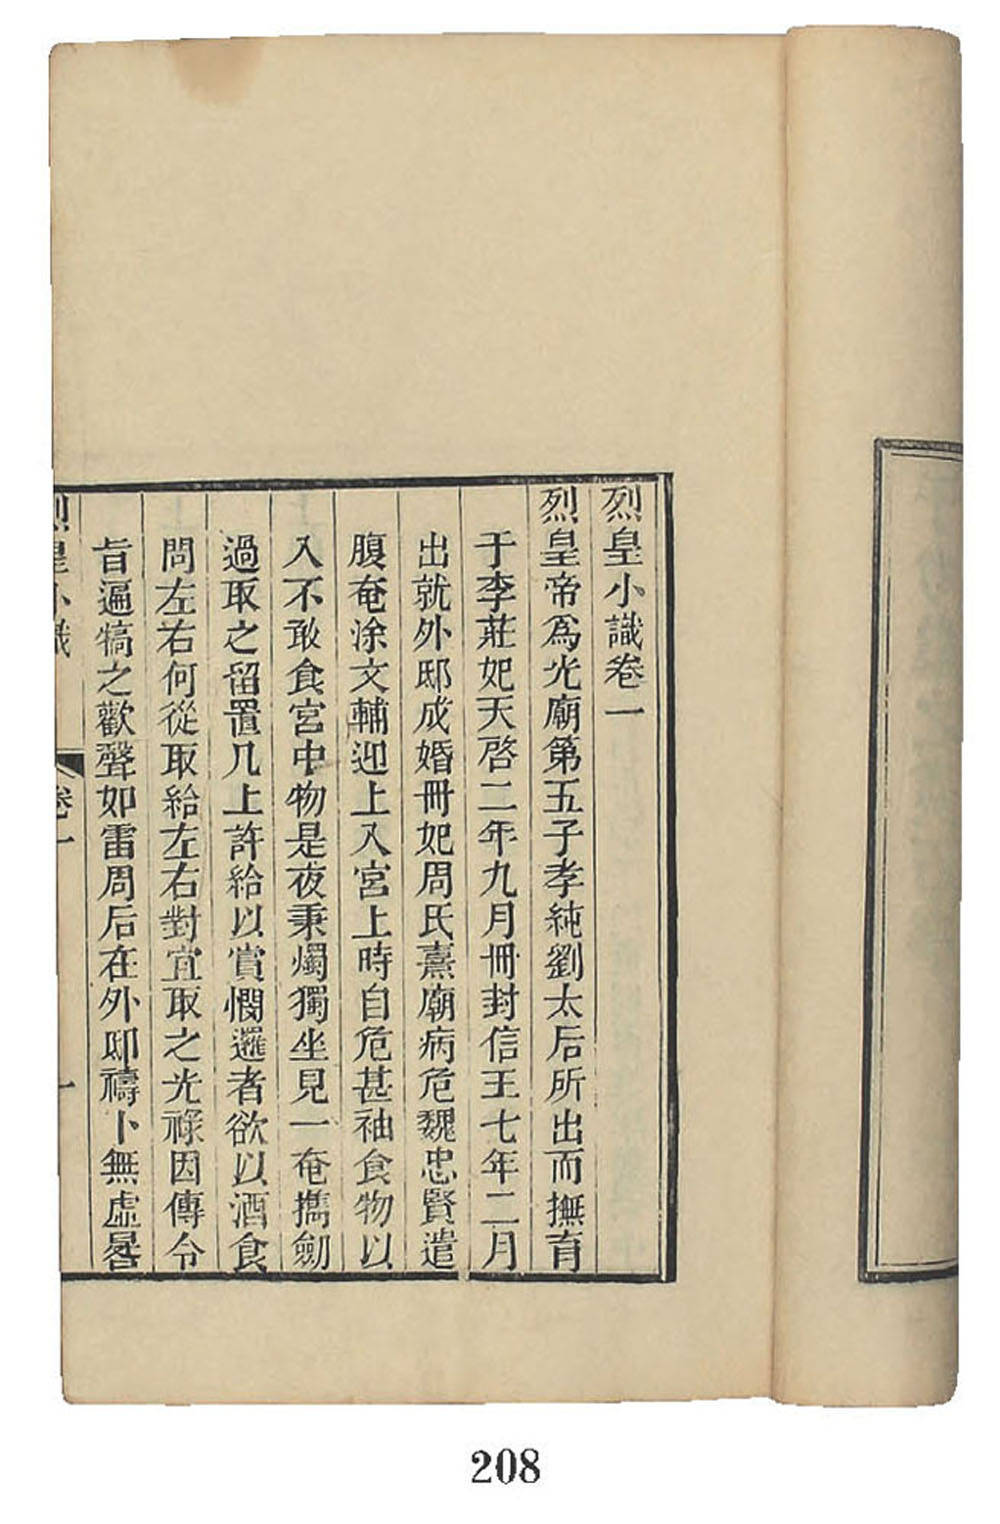 烈皇小識卷一
烈皇帝爲光廟第五子孝純劉太后所出而撫育
于李莊妃天啓二年九月冊封信王七年二月
出就外邸成婚冊妃周氏熹廟病危魏忠賢遣
腹奄涂文輔迎上入宮上時自危甚袖食物以
入不敢食宮中物是夜秉燭獨坐見一奄攜劍
過取之留置几上許給以賞憫邏者欲以酒食
問左右何從取給左右對宜取之光祿因傳令
旨遍犒之歡聲如雷周后在外邸禱卜無虛晷
烈皇小識
卷一
一
208